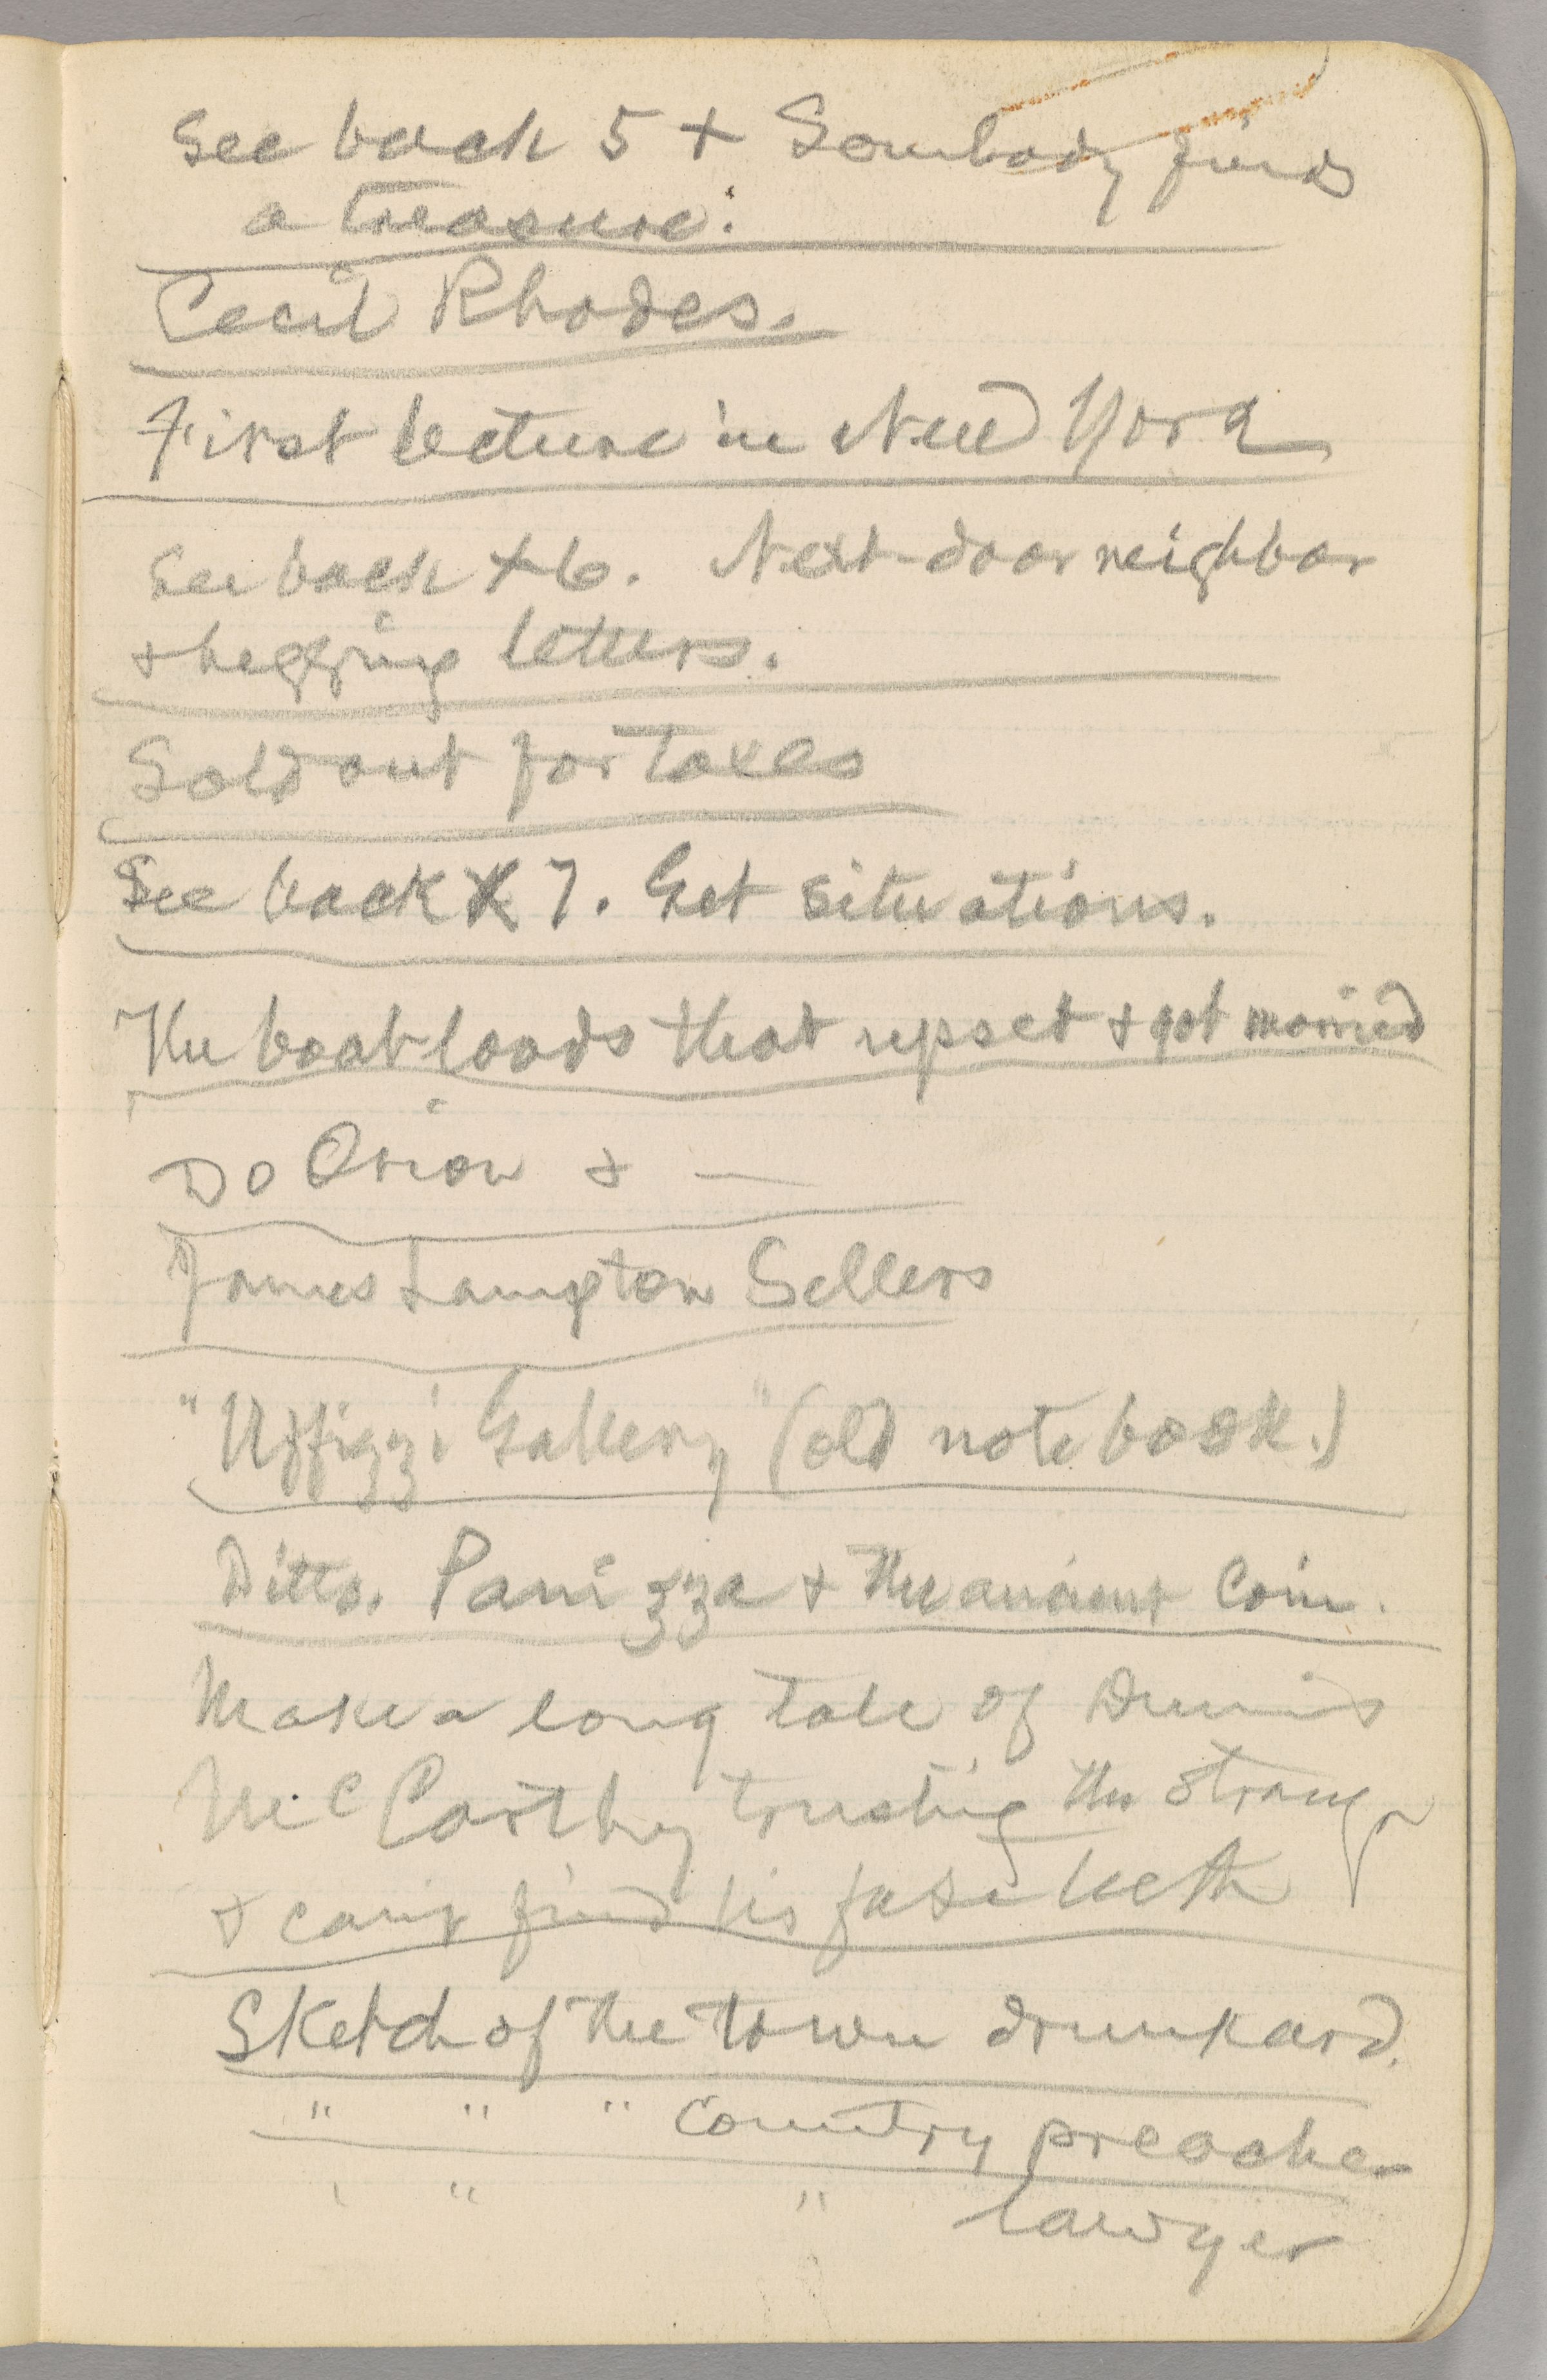 See back 5 + Sombody finds
a treasure.
Cecil Rhodes.
First lecture in New York
See back +6. Next-door neighbor
& begging letters.
Sold out for taxes
See back X 7. Get situations.
The boat loads that upset & got married
Do Orion & —
James Lampton Sellers
"Uffizzi Gallery" (old note book.)
Ditto. Panizza & the ancient Coin.
Make a long tale of Dennis
McCarthy trusting the stranger
& can't find his false teeth
Sketch of the town drunkard.
" " " country preacher
" " " lawyer